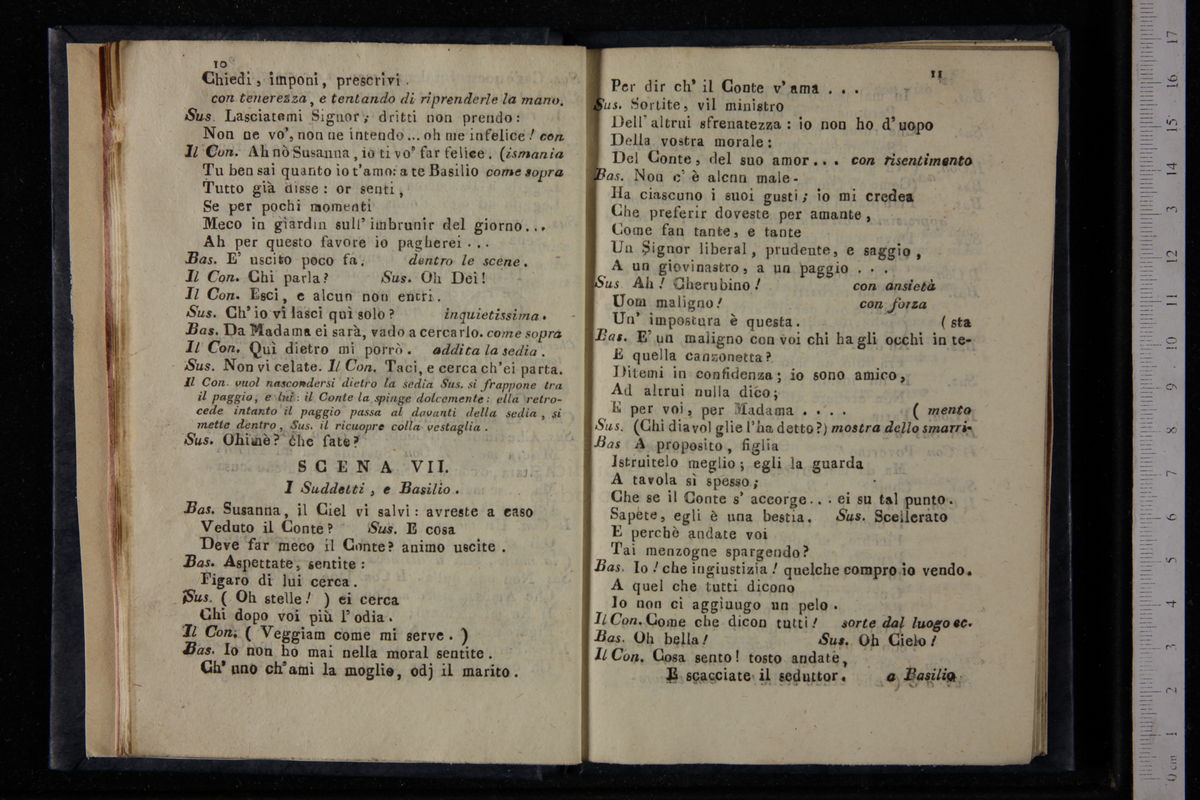 10
Chiedi, imponi, prescrivi.
con tenerezza, e tentando di riprenderle la mano.
Sus. Lasciatemi Signor; dritti non prendo:
Non ne vo', non ne intendo... oh me infelice! con
Il Con. Ah nò Susanna, io ti vo' far felice. (ismania
Tu ben sai quanto io t'amo: a te Basilio come sopra
Tutto già disse: or senti,
Se per pochi momenti
Meco in giardin sull' imbrunir del giorno...
Ah per questo favore io pagherei...
Bas. E' uscito poco fa. dentro le scene.
Il Con. Chi parla? Sus. Oh Dei!
Il Con. Esci, e alcun non entri.
Sus. Ch' io vi lasci quì solo? inquietissima.
Bas. Da Madama ei sarà, vado a cercarlo. come sopra
Il Con. Quì dietro mi porrò. addita la sedia.
Sus. Non vi celate. Il Con. Taci, e cerca ch'ei parta.
Il Con. vuol nascondersi dietro la sedia Sus. si frappone tra
il paggio, e lui: il Conte la spinge dolcemente: ella retro-
cede intanto il paggio passa al davanti della sedia, si
mette dentro, Sus. il ricuopre colla vestaglia.
Sus. Ohimè? che fate?
SCENA VII.
I Suddetti, e Basilio.
Bas. Susanna, il Ciel vi salvi: avreste a caso
Veduto il Conte? Sus. E cosa
Deve far meco il Conte? animo uscite.
Bas. Aspettate, sentite:
Figaro di lui cerca.
Sus. (Oh stelle!) ei cerca
Chi dopo voi più l'odia.
Il Con. (Veggiam come mi serve.)
Bas. Io non ho mai nella moral sentite.
Ch' uno ch'ami la moglie, odj il marito.
11
Per dir ch' il Conte v' ama...
Sus. Sortite, vil ministro
Dell' altrui sfrenatezza: io non ho d'uopo
Della vostra morale:
Del Conte, del suo amor... con risentimento
Bas. Non c' è alcnn male-
Ha ciascuno i suoi gusti; io mi credea
Che preferir doveste per amante,
Come fan tante, e tante
Un Signor liberal, prudente, e saggio,
A un giovinastro, a un paggio...
Sus Ah! Cherubino! con ansietà
Uom maligno! con forza
Un' impostura è questa. (sta
Bas. E' un maligno con voi chi ha gli occhi in te-
E quella canzonetta?
Ditemi in confidenza; io sono amico,
Ad altrui nulla dico;
E per voi, per Madama.... (mento
Sus. (Chi diavol glie l'ha detto?) mostra dello smarri-
Bas A proposito, figlia
Istruitelo meglio; egli la guarda
A tavola sì spesso;
Che se il Conte s' accorge... ei su tal punto.
Sapete, egli è una bestia. Sus. Scellerato
E perchè andate voi
Tai menzogne spargendo?
Bas. Io! che ingiustizia! quelche compro io vendo.
A quel che tutti dicono
Io non ci aggiuugo un pelo.
Il Con. Come che dicon tutti! sorte dal luogo ec.
Bas. Oh bella! Sus. Oh Cielo!
Il Con. Cosa sento! tosto andate,
E scacciate il seduttor. a Basilio
0 cm 1 2 3 4 5 6 7 8 9 10 11 12 13 14 15 16 17